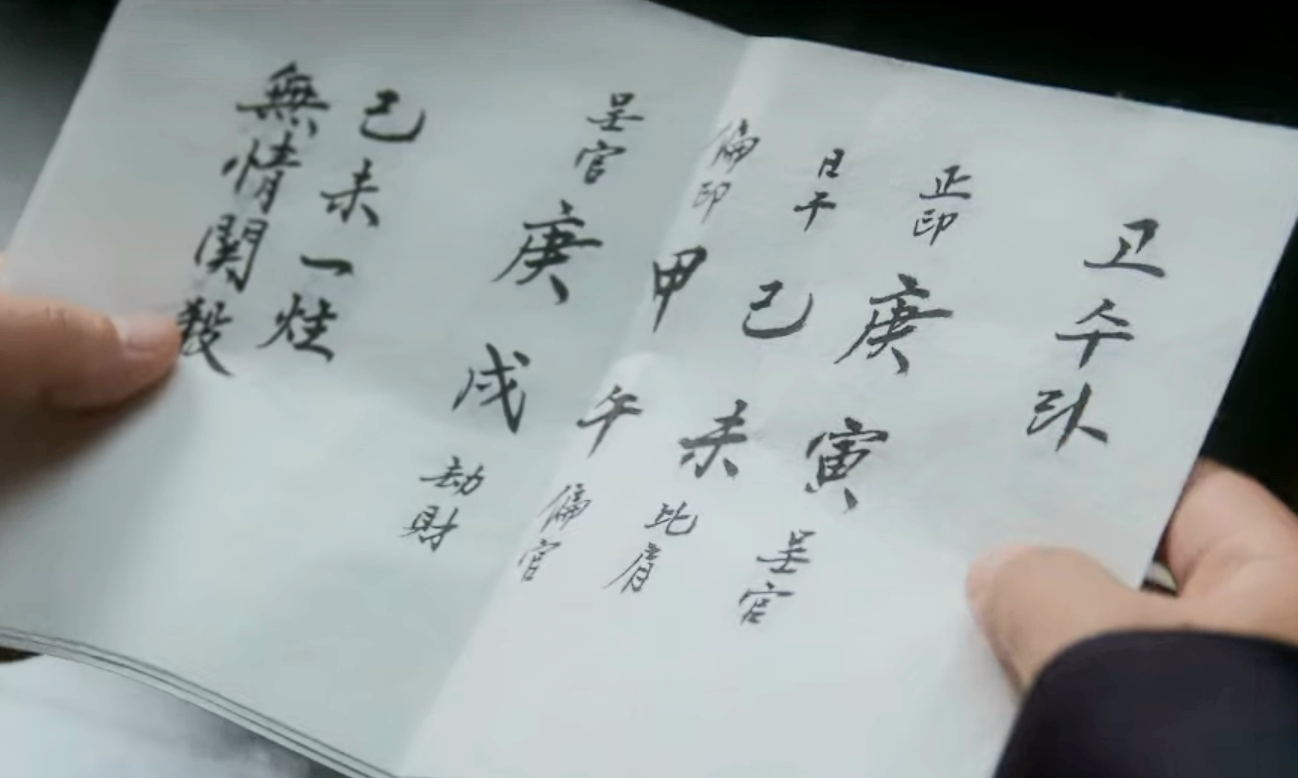 고수라
正印 庚寅 呈官
日干 己未 比肩
偏印 甲午 偏官
呈官 庚戌 劫財
己未一炷
無情関殺